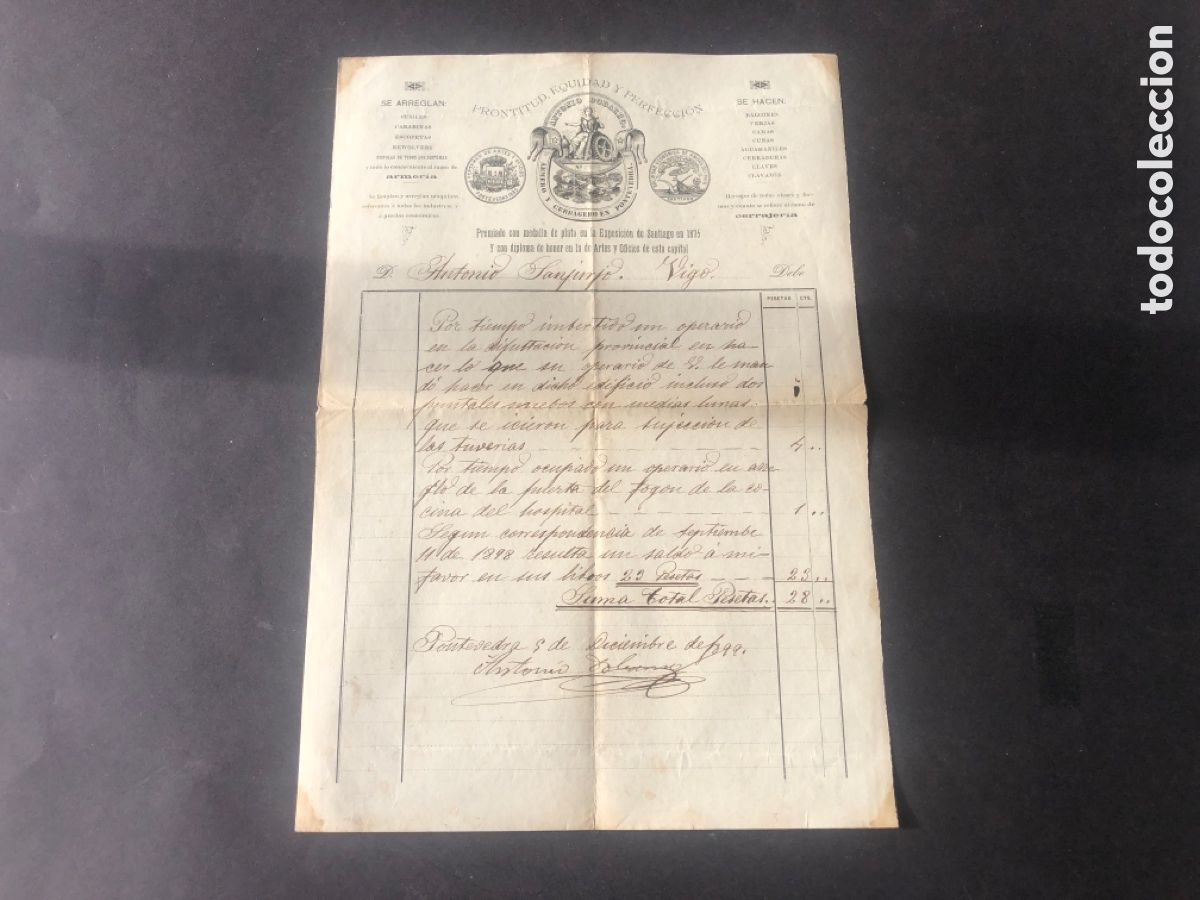 PRONTITUD, EQUIDAD Y PERFECCION
SE ARREGLAN:
FUSILES
CARABINAS
ESCOPETAS
REWOLVERS
armería
Se limpian y arreglan máquinas
á precios económicos.
ANTONIO
ARMERO Y CERRAGERO EN PONTEVEDRA
SE HACEN:
BALCONES
VERJAS
CAMAS
CUNAS
AGUAMANILES
CERRADURAS
LLAVES
CLAVAZON
Herrajes de todas clases y for-
mas y cuanto se refiere al ramo de
cerrajería
Premiado con medalla de plata en la Exposición de Santiago en 1875
Y con diploma de honor en la de Artes y Oficios de esta capital
D. Antonio Sanjurjo. Vigo. Debe
PESETAS CTS.
Por tiempo imbertido un operario
en la diputación provincial en ha-
cer lo que su operario de V. le man
dó hacer en dicho edificio incluso dos
puntales nuebos con medias lunas
que se icieron para sujección de
las tuverias 4 ..
Por tiempo ocupado un operario en arre
glo de la puerta del fogon de la co-
cina del hospital 1 ..
Segun correspondencia de septiembe
11 de 1898 resulta un saldo á mi
favor en sus libros 23 Pesetas 23 ..
Suma total Pesetas. 28 ..
Pontevedra 5 de Diciembre de 1899.
Antonio
todocoleccion